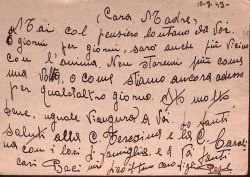 12-9-43-
Cara Madre,
Mai col pensiero lontano da Voi.
giorni per giorni, sarò anche più vicino
con l'anima. Non staremo più come
una volta, o come stiamo ancora adesso
per qualcialtro giorno. Sto molto
bene, uguale viengura a Voi tanti
saluti alla C. Teresina e la C.
ma con i loro di famiglia e a Voi tanti
cari Baci